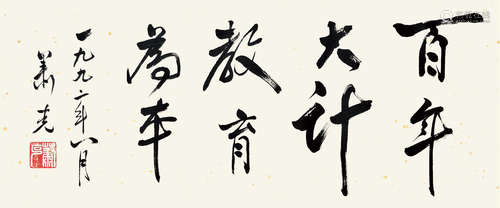 百年
大计
教育
为本
一九九二年八月
萧克